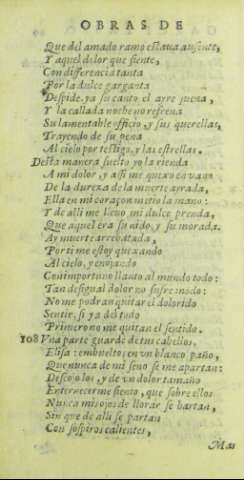 OBRAS DE
Que del amado ramo estaua ausente,
Y aquel dolor que siente,
Con differencia tanta
Por la dulce garganta
Despide, ya su canto el ayre suena,
Y la callada noche no refrena
Su lamentable officio, y sus querellas,
Trayendo de su pena
Al cielo por testigo, y las estrellas.
Desta manera suelto yo la rienda
A mi dolor, y assi me quexo en vano
De la dureza de la muerte ayrada,
Ella en mi coraçon metio la mano:
Y de alli me lleuo mi dulce prenda,
Que aquel era su nido, y su morada.
Ay muerte arrebatada,
Por ti me estoy quexando
Al cielo, y enojando
Con importuno llanto al mundo todo:
Tan desigual dolor no sufre modo:
No me podran quitar el dolorido
Sentir, si ya del todo
Primero no me quitan el sentido.
108 Vna parte guarde de tus cabellos,
Elisa: embueltos en vn blanco paño,
Que nunca de mi seno se me apartan:
Descojolos, y de vn dolor tamaño
Enternecerme siento, que sobre ellos
Nunca mis ojos de llorar se hartan,
Sin que de alli se partan
Con sospiros calientes,
Mas